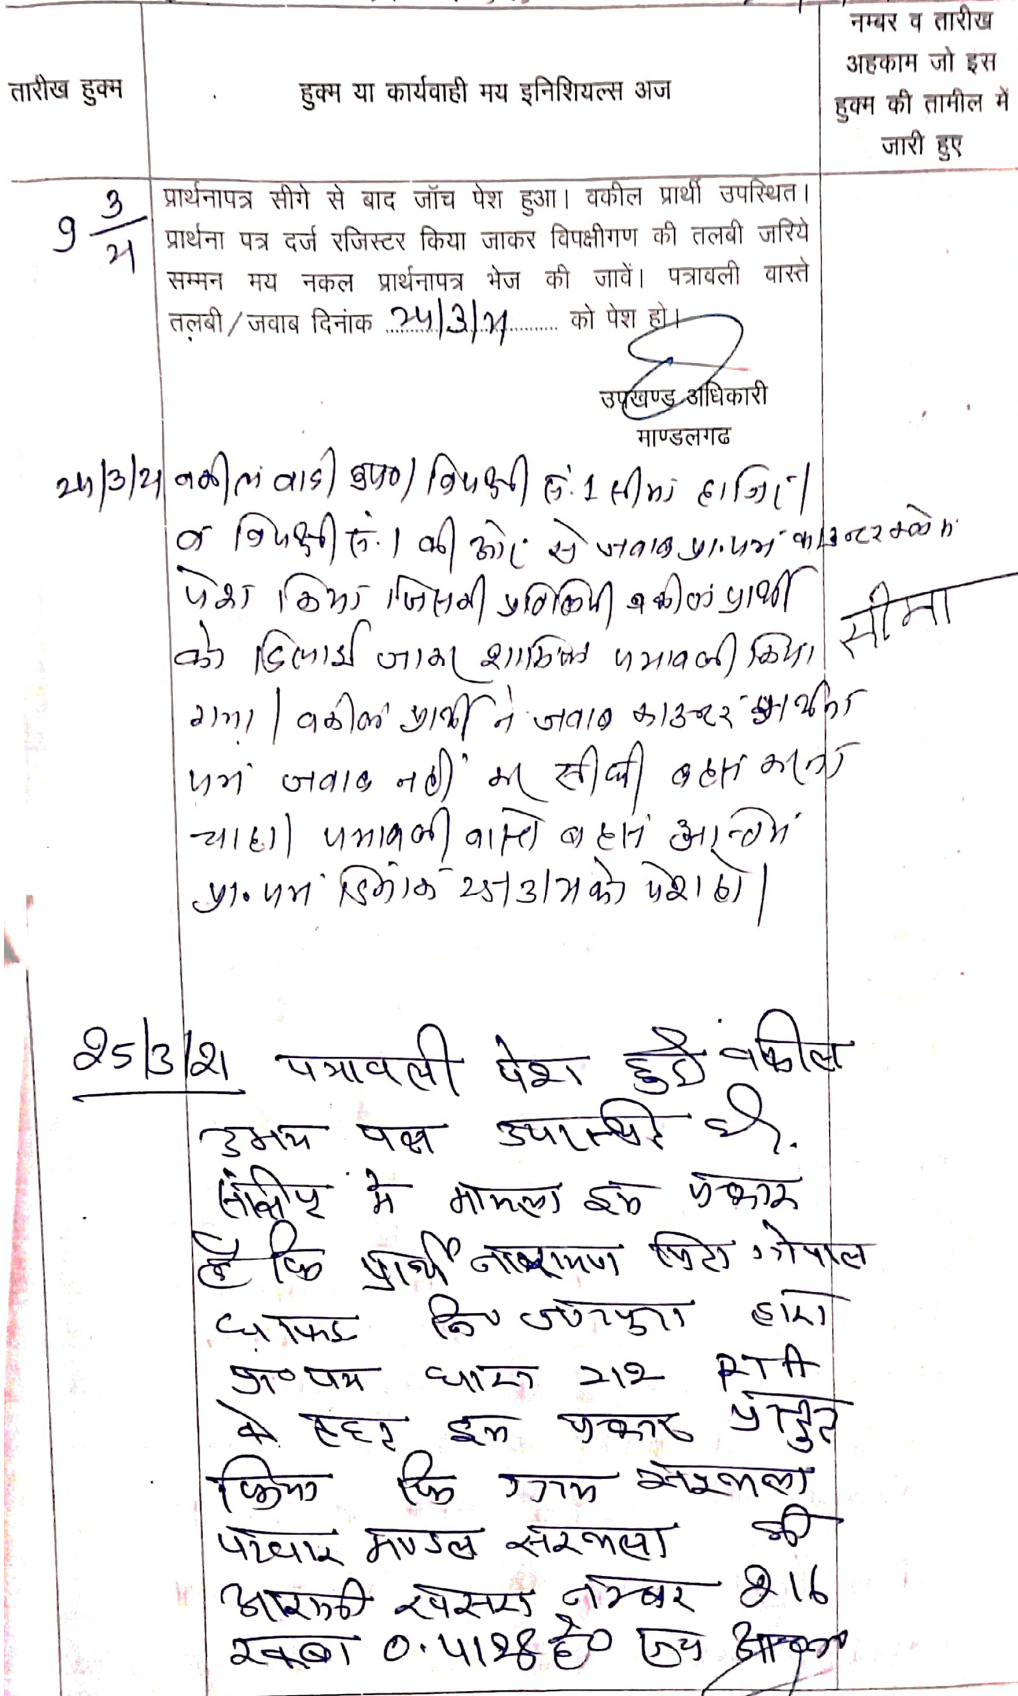 नम्बर व तारीख
अहकाम जो इस
हुक्म की तामील में
जारी हुए
तारीख हुक्म
हुक्म या कार्यवाही मय इनिशियल्स अज
9 3/21
प्रार्थनापत्र सीगे से बाद जॉच पेश हुआ। वकील प्रार्थी उपस्थित।
प्रार्थना पत्र दर्ज रजिस्टर किया जाकर विपक्षीगण की तलबी जरिये
सम्मन मय नकल प्रार्थनापत्र भेज की जावें। पत्रावली वास्ते
तलबी/जवाब दिनांक 24/3/21 को पेश हो।
उपखण्ड अधिकारी
माण्डलगढ
24/3/21 वकील वादी उप०/ विपक्षी सं. 1 सीमा हाजिर/
व विपक्षी सं. 1 की ओर से जवाब प्रा.पत्र काउन्टर क्लेम
पेश किया जिसकी प्रतिलिपी वकील प्रार्थी
को दिलाई जाकर शामिल पत्रावली किया
सीमा
गया/ वकील प्रार्थी ने जवाब काउन्टर प्रार्थना
पत्र जवाब नहीं कर सीधी बहस करना
चाहा/ पत्रावली वास्ते बहस अन्तिम
प्रा.पत्र दिनांक 25/3/21 को पेश हो/
25/3/21 पत्रावली पेश हुई वकील
उभय पक्ष उपस्थित है.
संक्षिप्त मे मामला इस प्रकार
है कि प्रार्थी नारायण पिता गोपाल
धाकड नि० द्वारा
प्रा०पत्र धारा 212 RTA
के तहत इस प्रकार प्रस्तुत
किया कि ग्राम
पटवार मण्डल की
आराजी खसरा नम्बर 216
रकबा 0.4128 है०